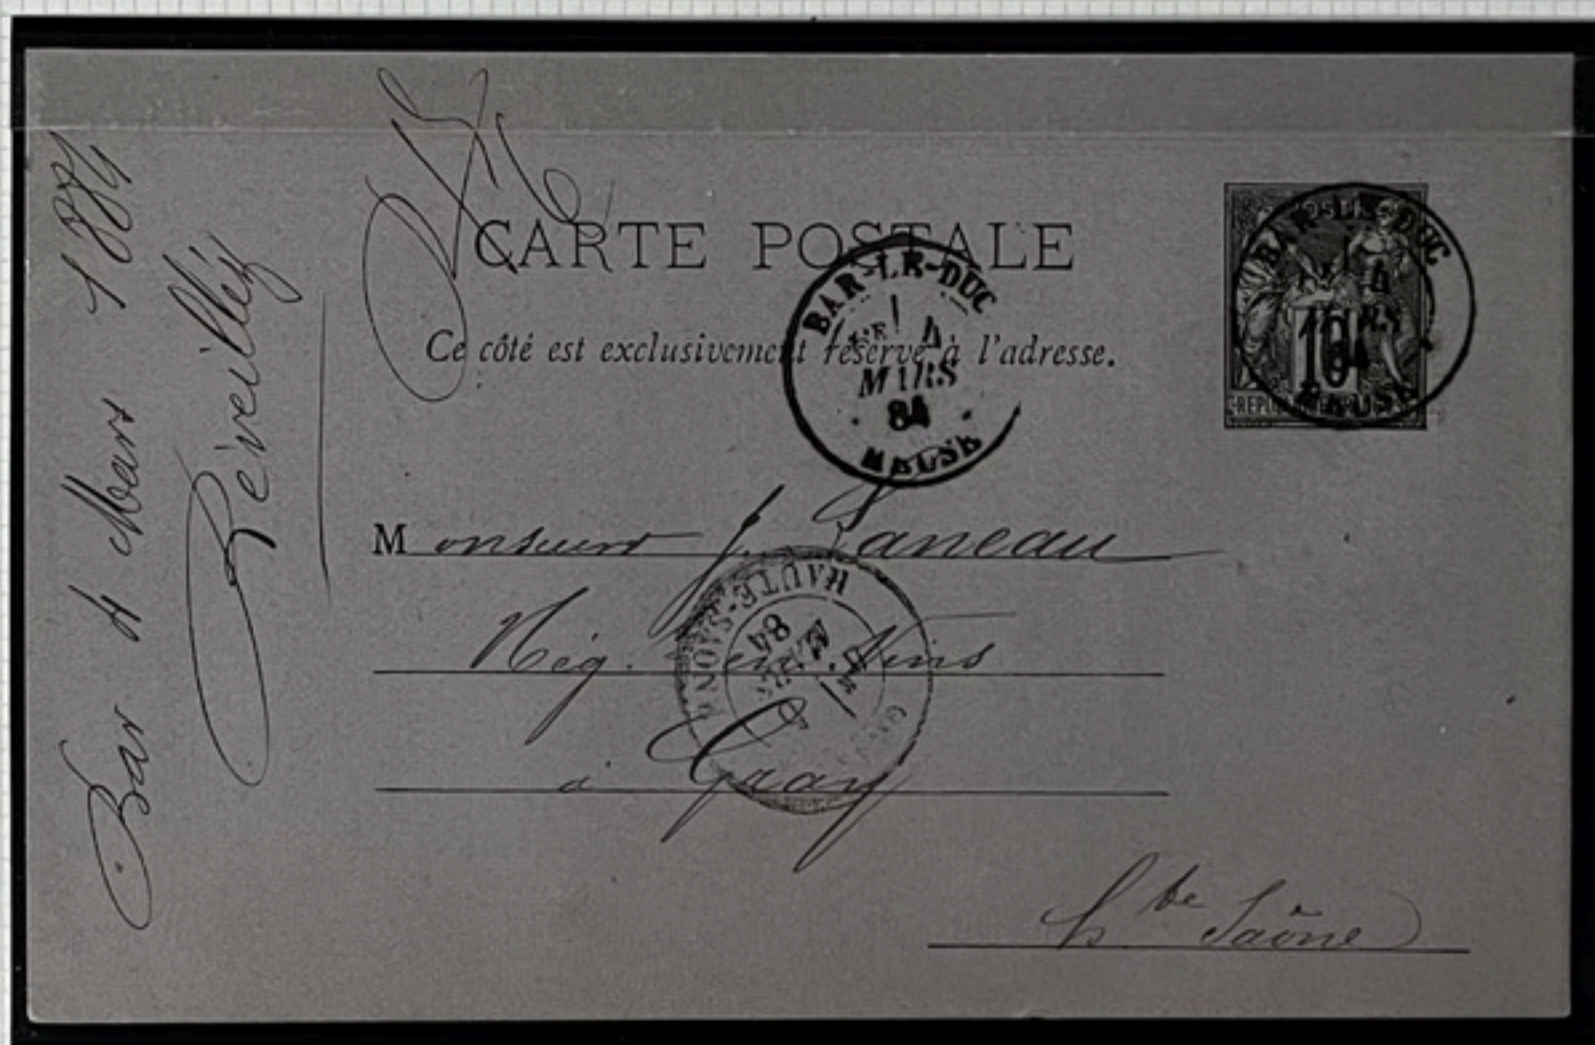 Bar 4 Mars 1884
Réveilléz
CARTE POSTALE
Ce côté est exclusivement réservé à l'adresse.
BAR-LE-DUC
4
MARS
84
MEUSE
BAR-LE-DUC
4
MARS
84
MEUSE
10
Monsieur J. Laneau
Nég. en Vins
à Gray
Hte Saône
HAUTE-SAONE
84